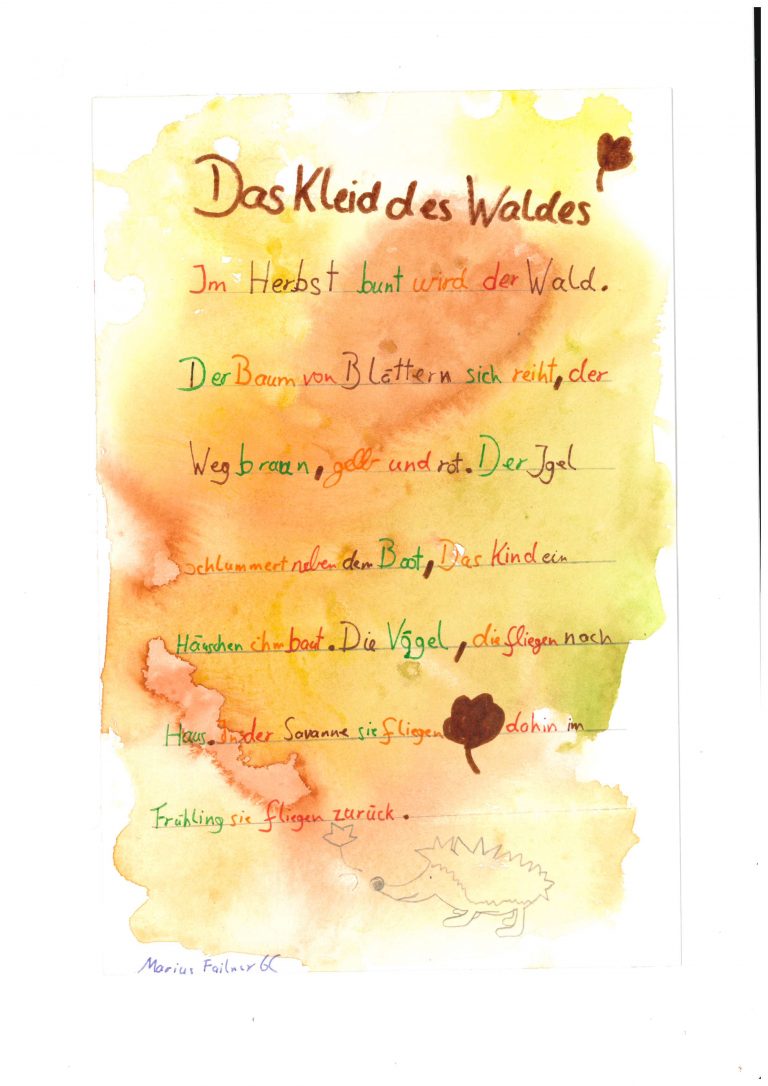 Das Kleid des Waldes
Im Herbst bunt wird der Wald.
Der Baum von Blättern sich reiht, der
Weg braun, gelb und rot. Der Igel
schlummert neben dem Boot, Das Kind ein
Häuschen ihm baut. Die Vögel, die fliegen noch
Haus. In der Savanne sie fliegen dahin im
Frühling sie fliegen zurück.
Marius Failner 6C